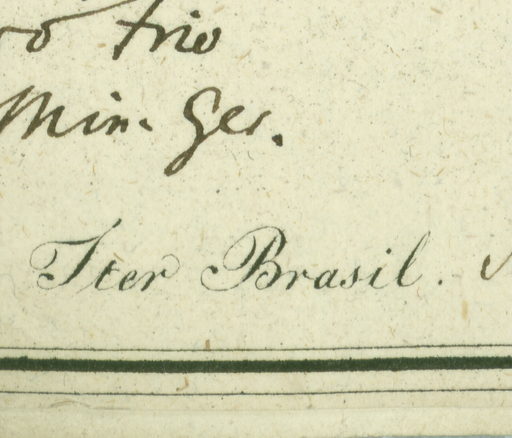 ro frio
Min. Ger.
Iter Brasil.